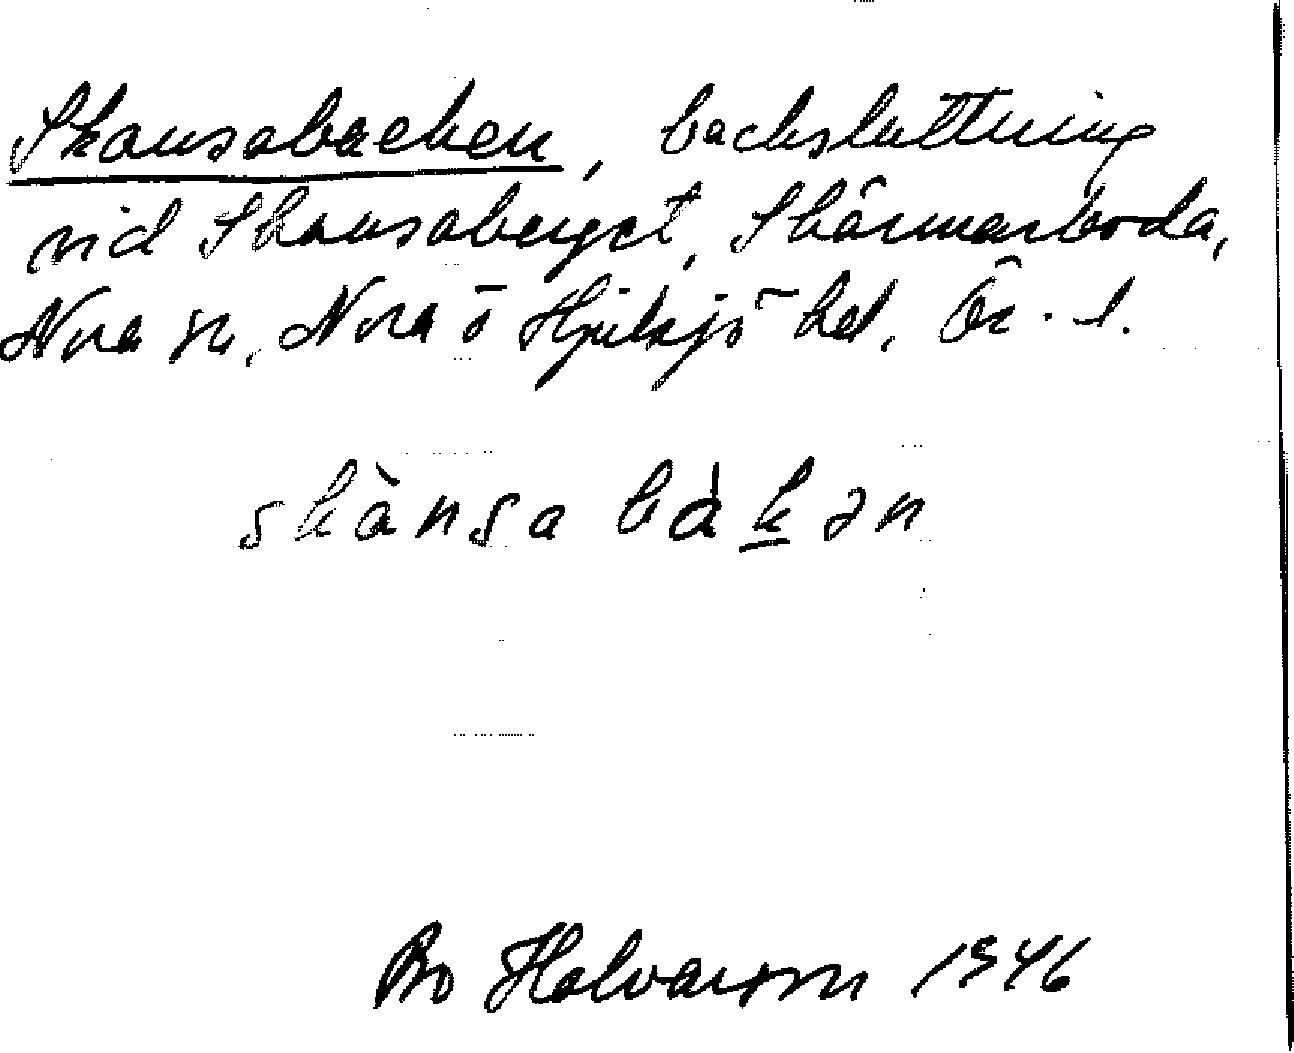 Skansabacken, backsluttning
vid Skansaberget, Skärmarboda,
Nora sn, Nora o Hjulsjö hd, Ör. l.
skànsa bàk̲ən
Bo Halvarson 1946